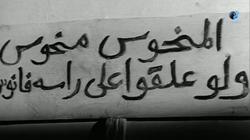 المنحوس منحوس
ولو علقوا على راسه فانوس